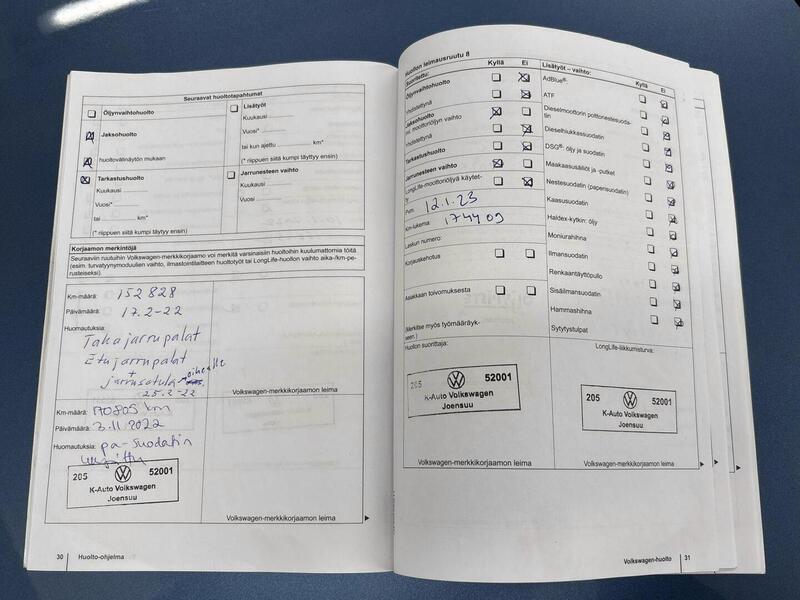 Seuraavat huoltotapahtumat
Öljynvaihtohuolto
Jaksohuolto
huoltovälinäytön mukaan
Tarkastushuolto
Kuukausi
Vuosi*
tai km*
(* riippuen siitä kumpi täyttyy ensin)
Lisätyöt
Kuukausi
Vuosi*
tai kun ajettu km*
(* riippuen siitä kumpi täyttyy ensin)
Jarrunesteen vaihto
Kuukausi
Vuosi
Korjaamon merkintöjä
Seuraaviin ruutuihin Volkswagen-merkkikorjaamo voi merkitä varsinaisiin huoltoihin kuulumattomia töitä
(esim. turvatyynymoduulien vaihto, ilmastointilaitteen huoltotyöt tai LongLife-huollon vaihto aika-/km-pe-
rusteiseksi).
Km-määrä: 152 828
Päivämäärä: 17.2-22
Huomautuksia:
Takajarrupalat
Etujarrupalat
+
25.2-22
Volkswagen-merkkikorjaamon leima
Km-määrä: 170805 km
Päivämäärä: 3.11.2022
Huomautuksia: pa-suodatin
205 52001
K-Auto Volkswagen
Joensuu
Volkswagen-merkkikorjaamon leima
30 Huolto-ohjelma
Huollon leimausruutu 8
Suoritettu: Kyllä Ei
Öljynvaihtohuolto
Yhdistettynä
Jaksohuolto
ml. moottoriöljyn vaihto
Yhdistettynä
Tarkastushuolto
Jarrunesteen vaihto
LongLife-moottoriöljyä käytet-
ty
Pvm. 12.1.23
Km-lukema: 174409
Laskun numero:
Korjauskehotus
Asiakkaan toivomuksesta
(Merkitse myös työmääräyk-
seen.)
Huollon suorittaja:
205 52001
K-Auto Volkswagen
Joensuu
Volkswagen-merkkikorjaamon leima
Lisätyöt – vaihto: Kyllä Ei
AdBlue®:
ATF
Dieselmoottorin polttonestesuoda-
tin
Dieselhiukkassuodatin
DSG®: öljy ja suodatin
Makakaasusäiliöt ja -putket
Nestesuodatin (paperisuodatin)
Kaasusuodatin
Haldex-kytkin: öljy
Moniurahihna
Ilmansuodatin
Renkaantäyttöpullo
Sisäilmansuodatin
Hammashihna
Sytytystulpat
LongLife-liikkumisturva:
205 52001
K-Auto Volkswagen
Joensuu
Volkswagen-merkkikorjaamon leima
Volkswagen-huolto 31